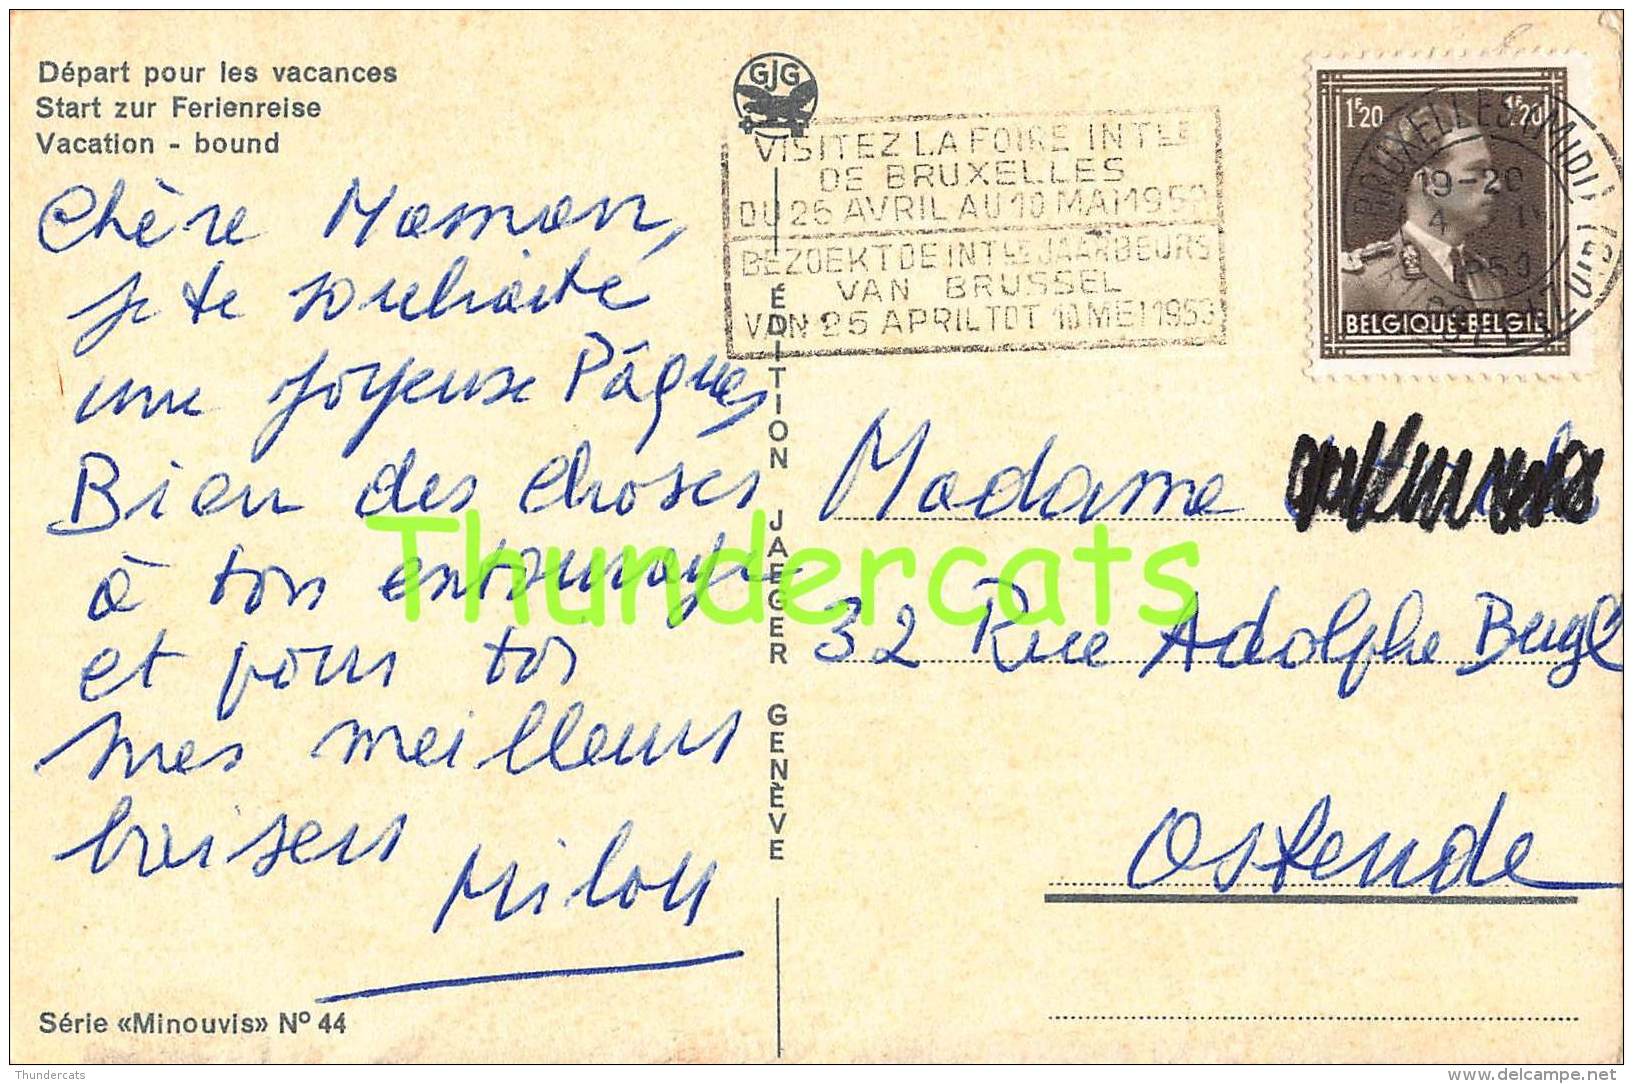 Départ pour les vacances
Start zur Ferienreise
Vacation - bound
GJG
VISITEZ LA FOIRE INTLE
DE BRUXELLES
DU 25 AVRIL AU 10 MAI 1953
BEZOEKT DE INTLE JAARBEURS
VAN BRUSSEL
VAN 25 APRIL TOT 10 MEI 1953
1F20 1F20
BELGIQUE-BELGIE
BRUXELLES (MIDI)
19-20
1953
BRUSSEL
Chère Maman,
je te souhaite
une joyeuse Pâques
Bien des choses
à ton entourage
et pour toi
mes meilleurs
baisers Milou
EDITION JAEGER GENÈVE
Madame
32 Rue Adolphe
Ostende
Série «Minouvis» Nº 44
Thundercats
Thundercats
www.delcampe.net